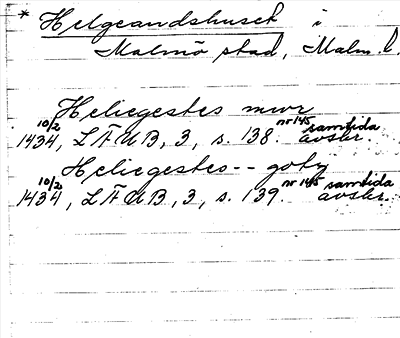 * Helgeandshuset i
Malmö stad, Malm. l.
Heliegestes mwr
10/2 1434, LÄUB, 3, s. 138. nr 145 samtida avskr.
Heliegestes -- goty
10/2 1434, LÄUB, 3, s. 139. nr 145 samtida avskr.